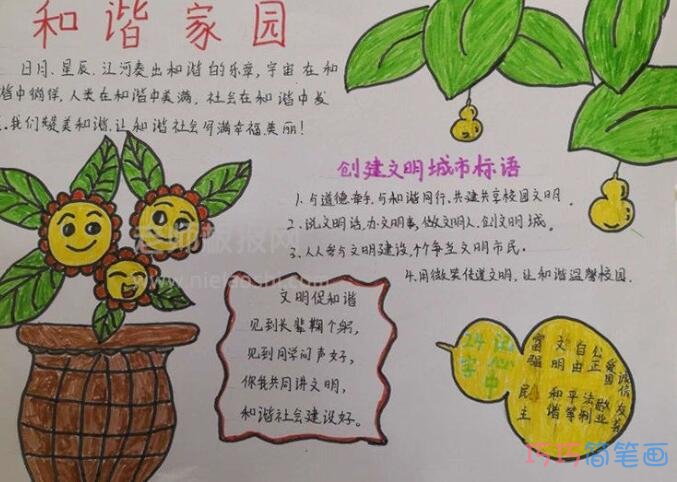 和谐家园
日月、星辰、江河奏出和谐的乐章,宇宙在和
谐中徜徉,人类在和谐中美满,社会在和谐中发
我们赞美和谐,让和谐社会更满幸福美丽!
创建文明城市标语
1.与道德牵手,与和谐同行,共建共享校园文明.
2.说文明话,办文明事,做文明人,创文明城.
3.人人参与文明建设,个个争当文明市民.
4.用微笑传递文明,让和谐温馨校园.
文明促和谐
见到长辈鞠个躬,
见到同学问声好,
你我共同讲文明,
和谐社会建设好。
24字
记心中
富强
文明
自由
公正
爱国
诚信
民主
和谐
平等
法制
敬业
友善
巧巧简笔画